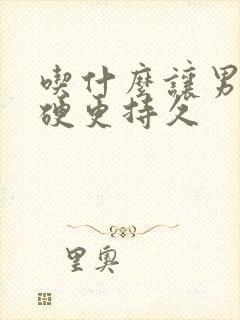 喫什麼讓男
硬更持久
里奧